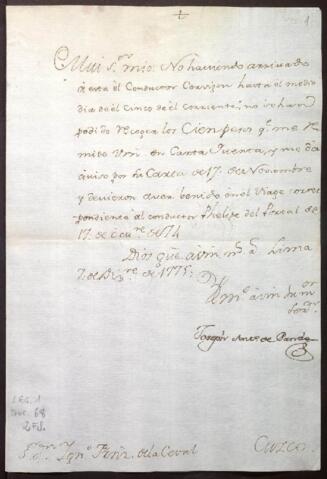 1
Mui S.or mio: No haviendo arrivado
a esta el Conductor Consignn hasta el medio
dia de el cinco de el corriente, no se han
podido recoger los Cien pesos q.e me re
mite Vm en Carta Quenta, y me da
aviso por su Carta de 17. de Noviembre
y devieron aver benido en el Viage corres
pondiente al conductor Phelipe del
17. de 74
Dios gûe a Vm m.s a.s Lima
7. de Diz.re de 1775.
Joseph Anto de Parada
LEG. 1
DOC. 68
2 FS.
S.or Dn Ign.o Frnz. de la Ceval
Cuzco